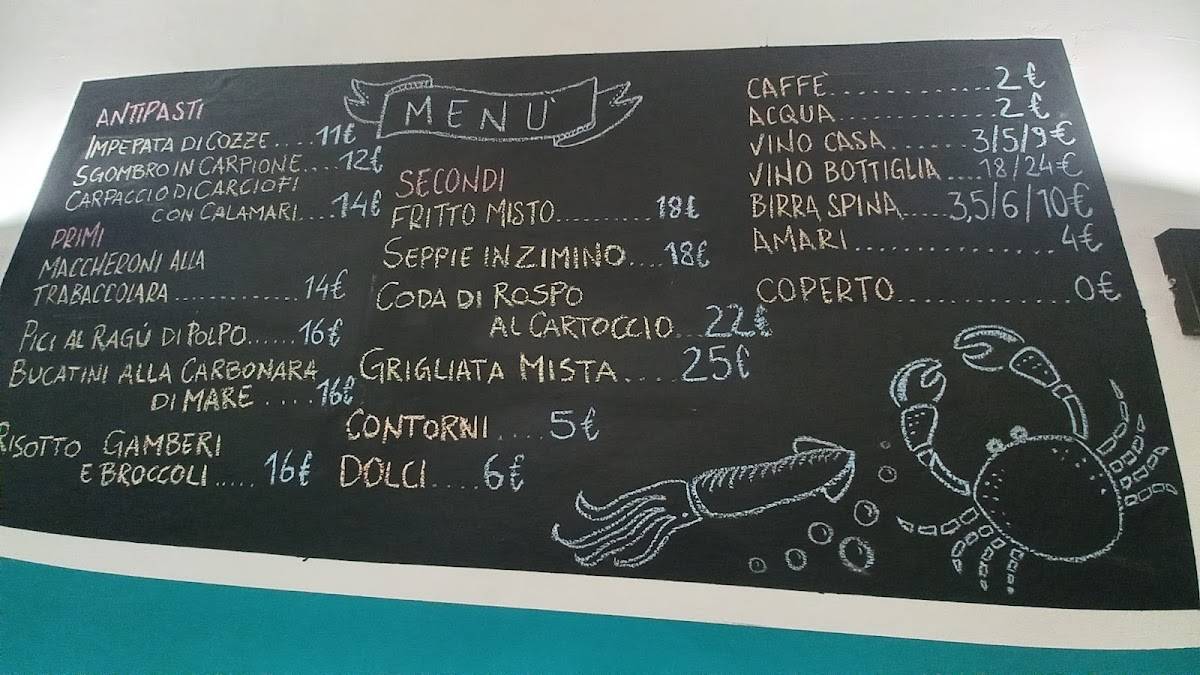 MENU'
ANTIPASTI
IMPEPATA DI COZZE.....11€
SGOMBRO IN CARPIONE....12€
CARPACCIO DI CARCIOFI
CON CALAMARI....14€
PRIMI
MACCHERONI ALLA
TRABACCOLARA...............14€
PICI AL RAGÚ DI POLPO......16€
BUCATINI ALLA CARBONARA
DI MARE.....16€
RISOTTO GAMBERI
E BROCCOLI.....16€
SECONDI
FRITTO MISTO..........18€
SEPPIE IN ZIMINO....18€
CODA DI ROSPO
AL CARTOCCIO...22€
GRIGLIATA MISTA....25€
CONTORNI....5€
DOLCI....6€
CAFFÈ...............2€
ACQUA...............2€
VINO CASA.......3/5/9€
VINO BOTTIGLIA....18/24€
BIRRA SPINA.....3,5/6/10€
AMARI...................4€
COPERTO...............0€